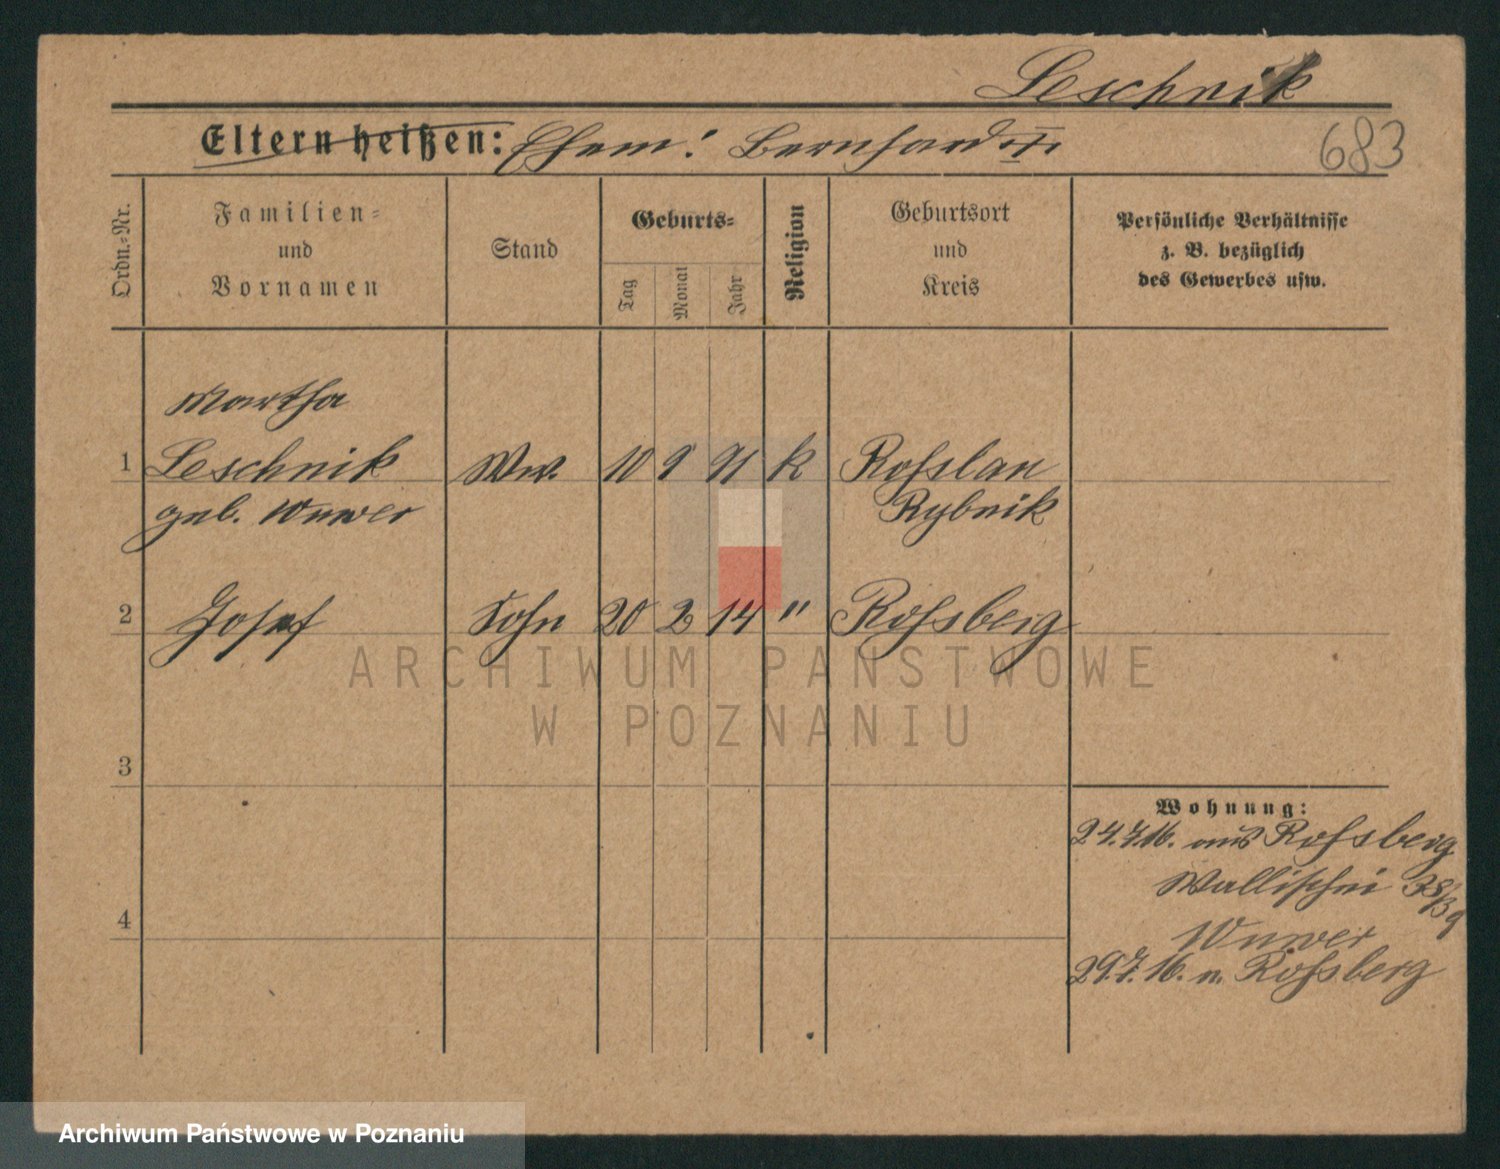 Leschnik
683
Eltern heißen: Ehem: Bernhard
Ordn.=Nr.
Familien=
und
Vornamen
Stand
Geburts=
Tag
Monat
Jahr
Religion
Geburtsort
und
Kreis
Persönliche Verhältnisse
z. B. bezüglich
des Gewerbes usw.
Martha
1 Leschnik Ww. 10 9 91 k Rosslau
geb. Wuwer Rybnik
2 Josef Sohn 20 2 14 " Rossberg
3
4
Wohnung:
24.7.16. aus Rossberg
Wallischei 38/39
Wuwer
29.7.16. n. Rossberg
ARCHIWUM PAŃSTWOWE
W POZNANIU
Archiwum Państwowe w Poznaniu